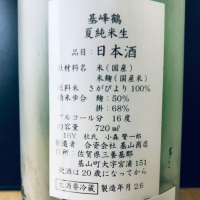 基峰鶴
夏純米生
品目：日本酒
原材料名 米（国産）
米麹（国産）
原料米 さがびより100％
精米歩合 麹：50％
掛：68％
アルコール分 16度
内容量 720㎖
BSY 杜氏 小森賢一郎
製造者 合資会社 基山商店
住所 佐賀県三養基郡
基山町大字宮浦151
飲酒は20歳になってから
要冷蔵 製造年月26